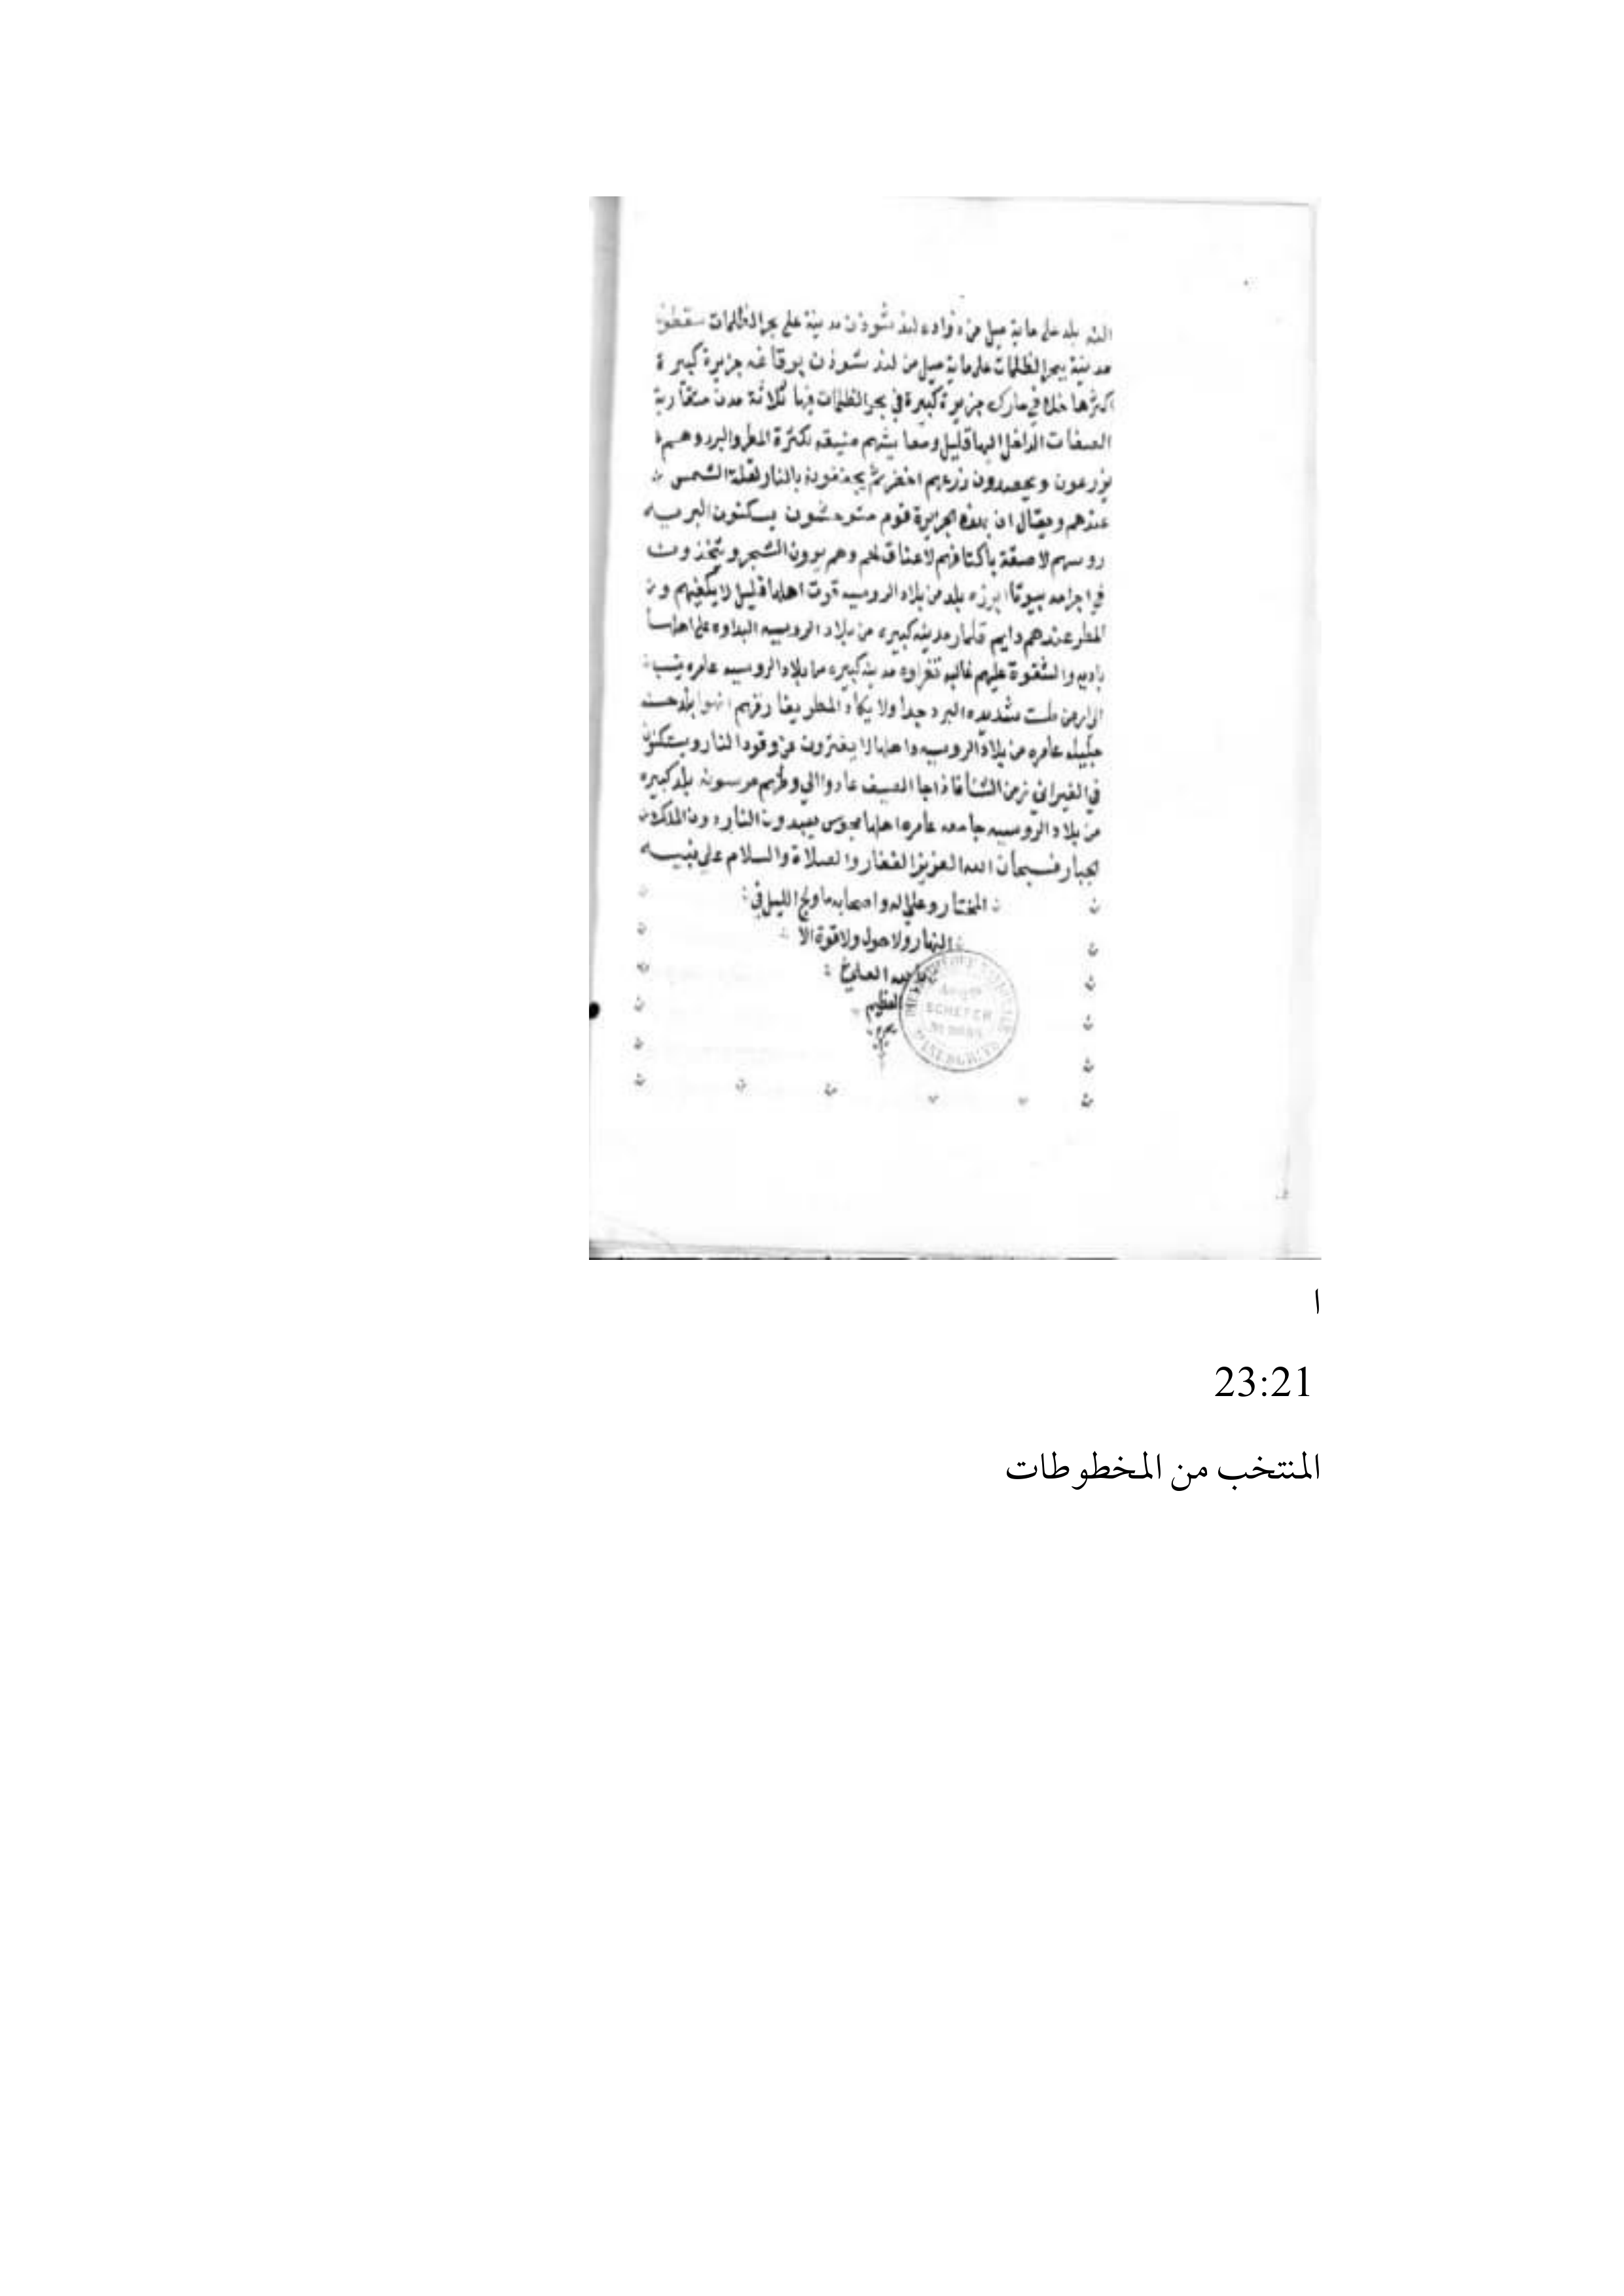 بلد على ماية ميل من دواده لند شوذن مدينة على بحر الظلمات سقطون
مدينة ببحر الظلمات على ماية ميل من لند شوذن يرقاغه جزيرة كبيرة
اكثرها خلا في مارك جزيرة كبيرة في بحر الظلمات فيها ثلاثة مدن متقاربة
الصفات الداخل اليها قليل ومعايشهم ضيقه لكثرة المطر والبرد وهم
يزرعون ويحصدون زرعهم اخضر ثم يجففونه بالنار لقلة الشمس
عندهم ويقال ان بهذه الجزيرة قوم متوحشون يسكنون البريه
روسهم لاصقة باكتافهم لا عناق لهم وهم يوون الشجر ويتخذون
في اجرامه بيوتا ابرزه بلد من بلاد الروسيه قوت اهلها قليل لا يكفيهم و
المطر عندهم دايم قلمار مدينه كبيره من بلاد الروسيه البداوه على اهلها
باديه والشقوة عليهم غالبه تغراوه مدينه كبيره من بلاد الروسيه عامره
شديده البرد جدا ولا يكاد المطر يفارقهم انهوا بلد حسنه
جليله عامره من بلاد الروسيه واهلها لا يفترون عن وقود النار ويسكنون
في الغيران زمن الشتا فاذا جا الصيف عادوا الي وطنهم مرسونه بلد كبيره
من بلاد الروسيه جامعه عامره اهلها مجوس يعبدون النار دون الملك
الجبار فسبحان الله العزيز الغفار والصلاة والسلام علي نبيه
المختار وعلي اله واصحابه ما ولج الليل في
النهار ولا حول ولا قوة الا
بالله العلي
العظيم
SCHEFER
ا
23:21
المنتخب من المخطوطات